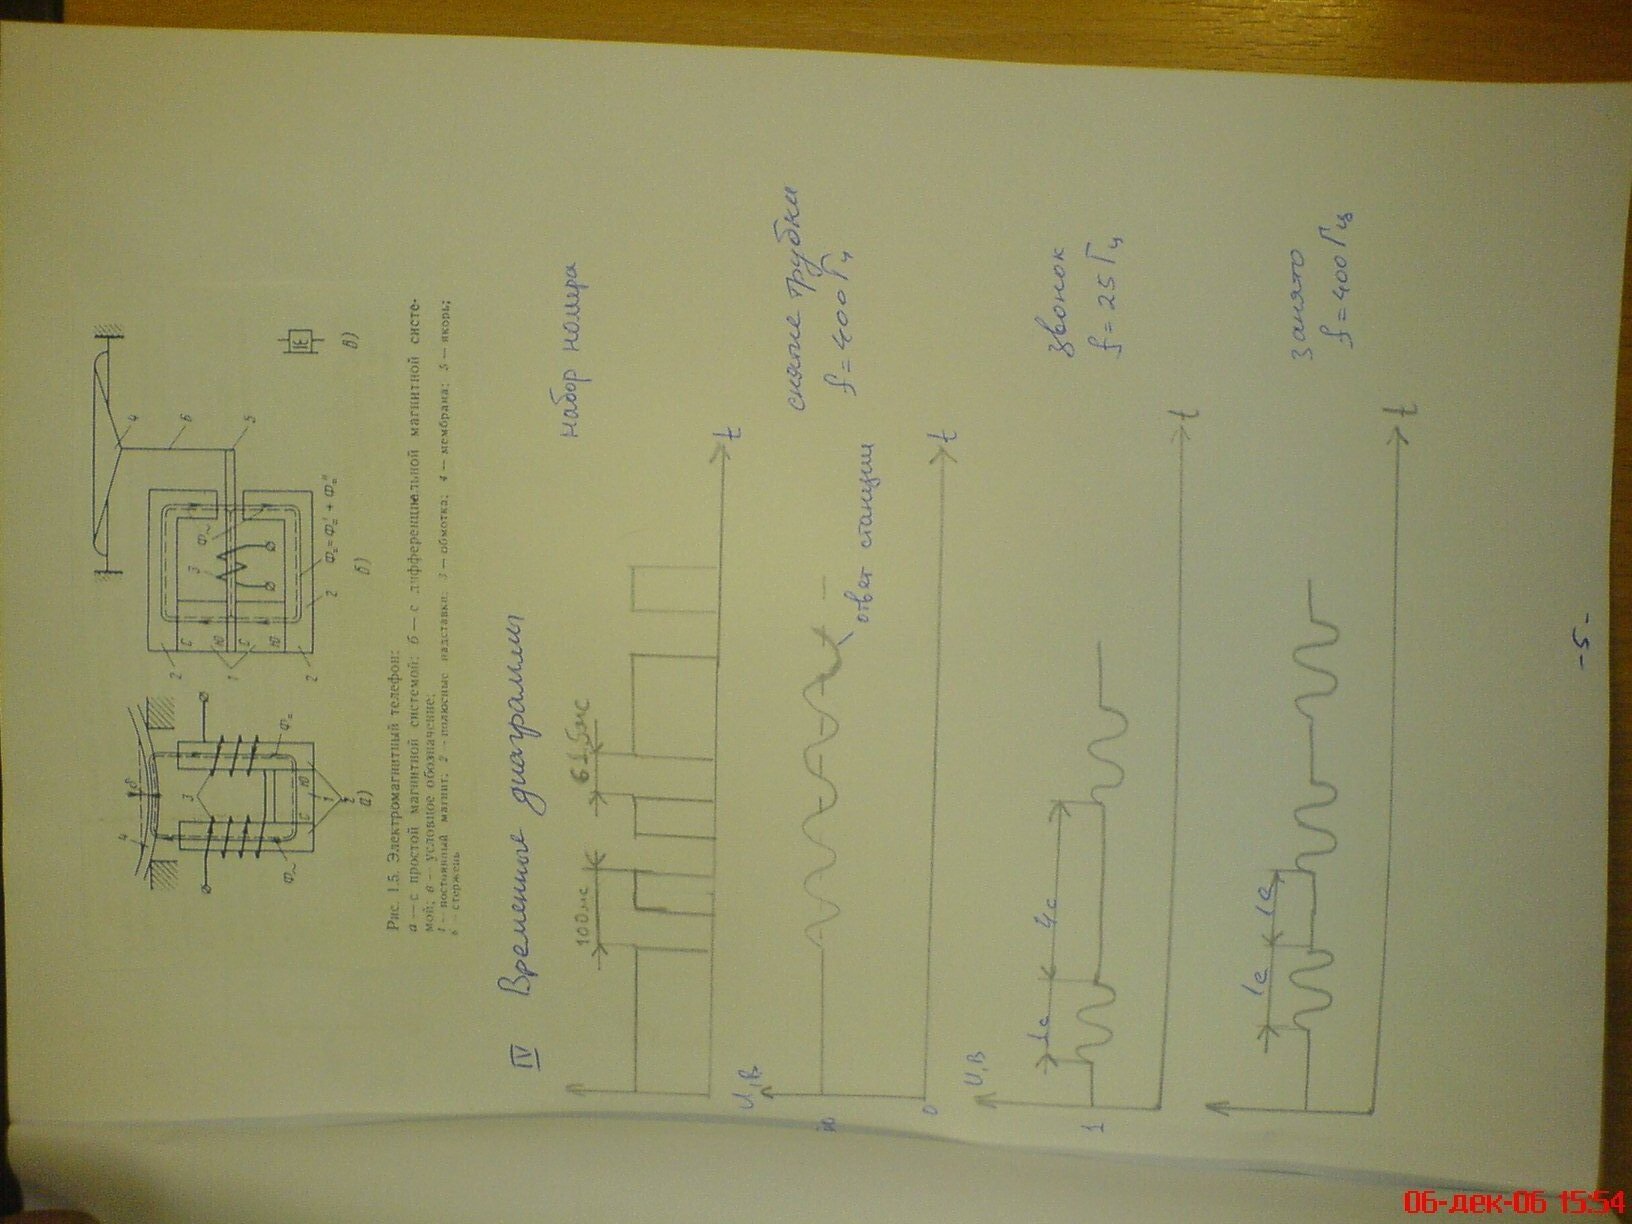 4
δ
3
Ф~
Ф=
С
Ю
1
2
а)
2
С
Ю
1
С
Ю
2
3
Ф~
2
Ф= = Ф=′ + Ф=″
б)
4
6
5
в)
Рис. 1.5. Электромагнитный телефон:
а — с простой магнитной системой; б — с дифференциальной магнитной систе-
мой; в — условное обозначение;
1 — постоянный магнит; 2 — полюсные надставки; 3 — обмотка; 4 — мембрана; 5 — якорь;
6 — стержень
IV Временные диаграммы
набор номера
100мс
t
снятие трубки
f = 400 Гц
U,В
ответ станции
0
t
звонок
f = 25 Гц
U,В
1с
4с
1
t
занято
f = 400 Гц
1с
1с
t
-5-
06-дек-06 15:54